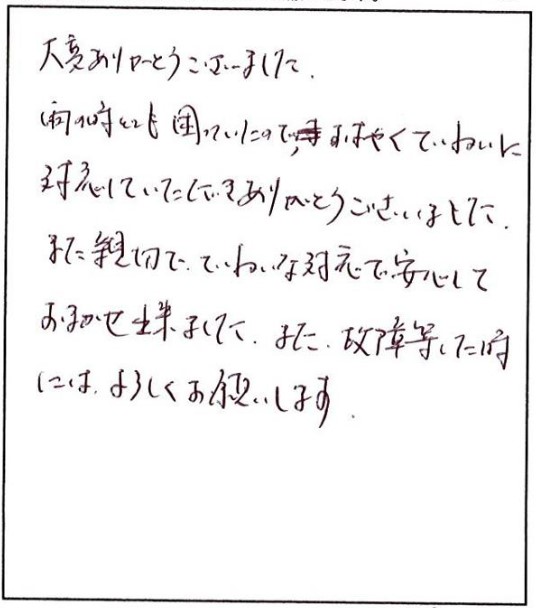 大変ありがとうございました.
雨の時とても困っていたので、すばやくていねいに
対応していただきありがとうございました.
また親切で、ていねいな対応で安心して
おまかせ出来ました. また、故障等した時
には、よろしくお願いします.